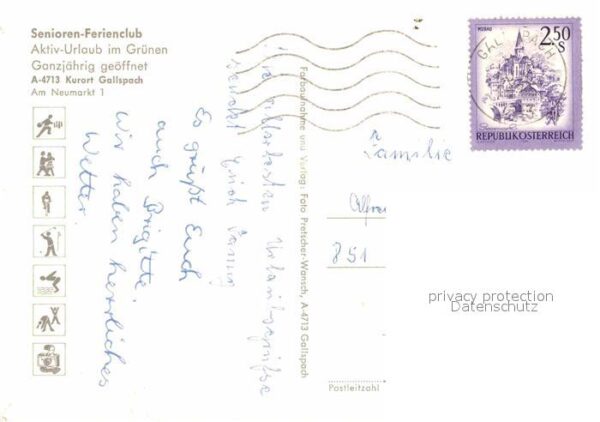 Senioren-Ferienclub
Aktiv-Urlaub im Grünen
Ganzjährig geöffnet
A-4713 Kurort Gallspach
Am Neumarkt 1
Urlaubsgrüße
sendet Erich
Es grüßt Euch
auch Brigitte.
Wir haben herrliches
Wetter
Farbaufnahme und Verlag: Foto Pretscher-Wansch, A-4713 Gallspach
MURAU
2.50
S
REPUBLIK ÖSTERREICH
GALLSPACH
Familie
Alfre
851
Postleitzahl
privacy protection
Datenschutz